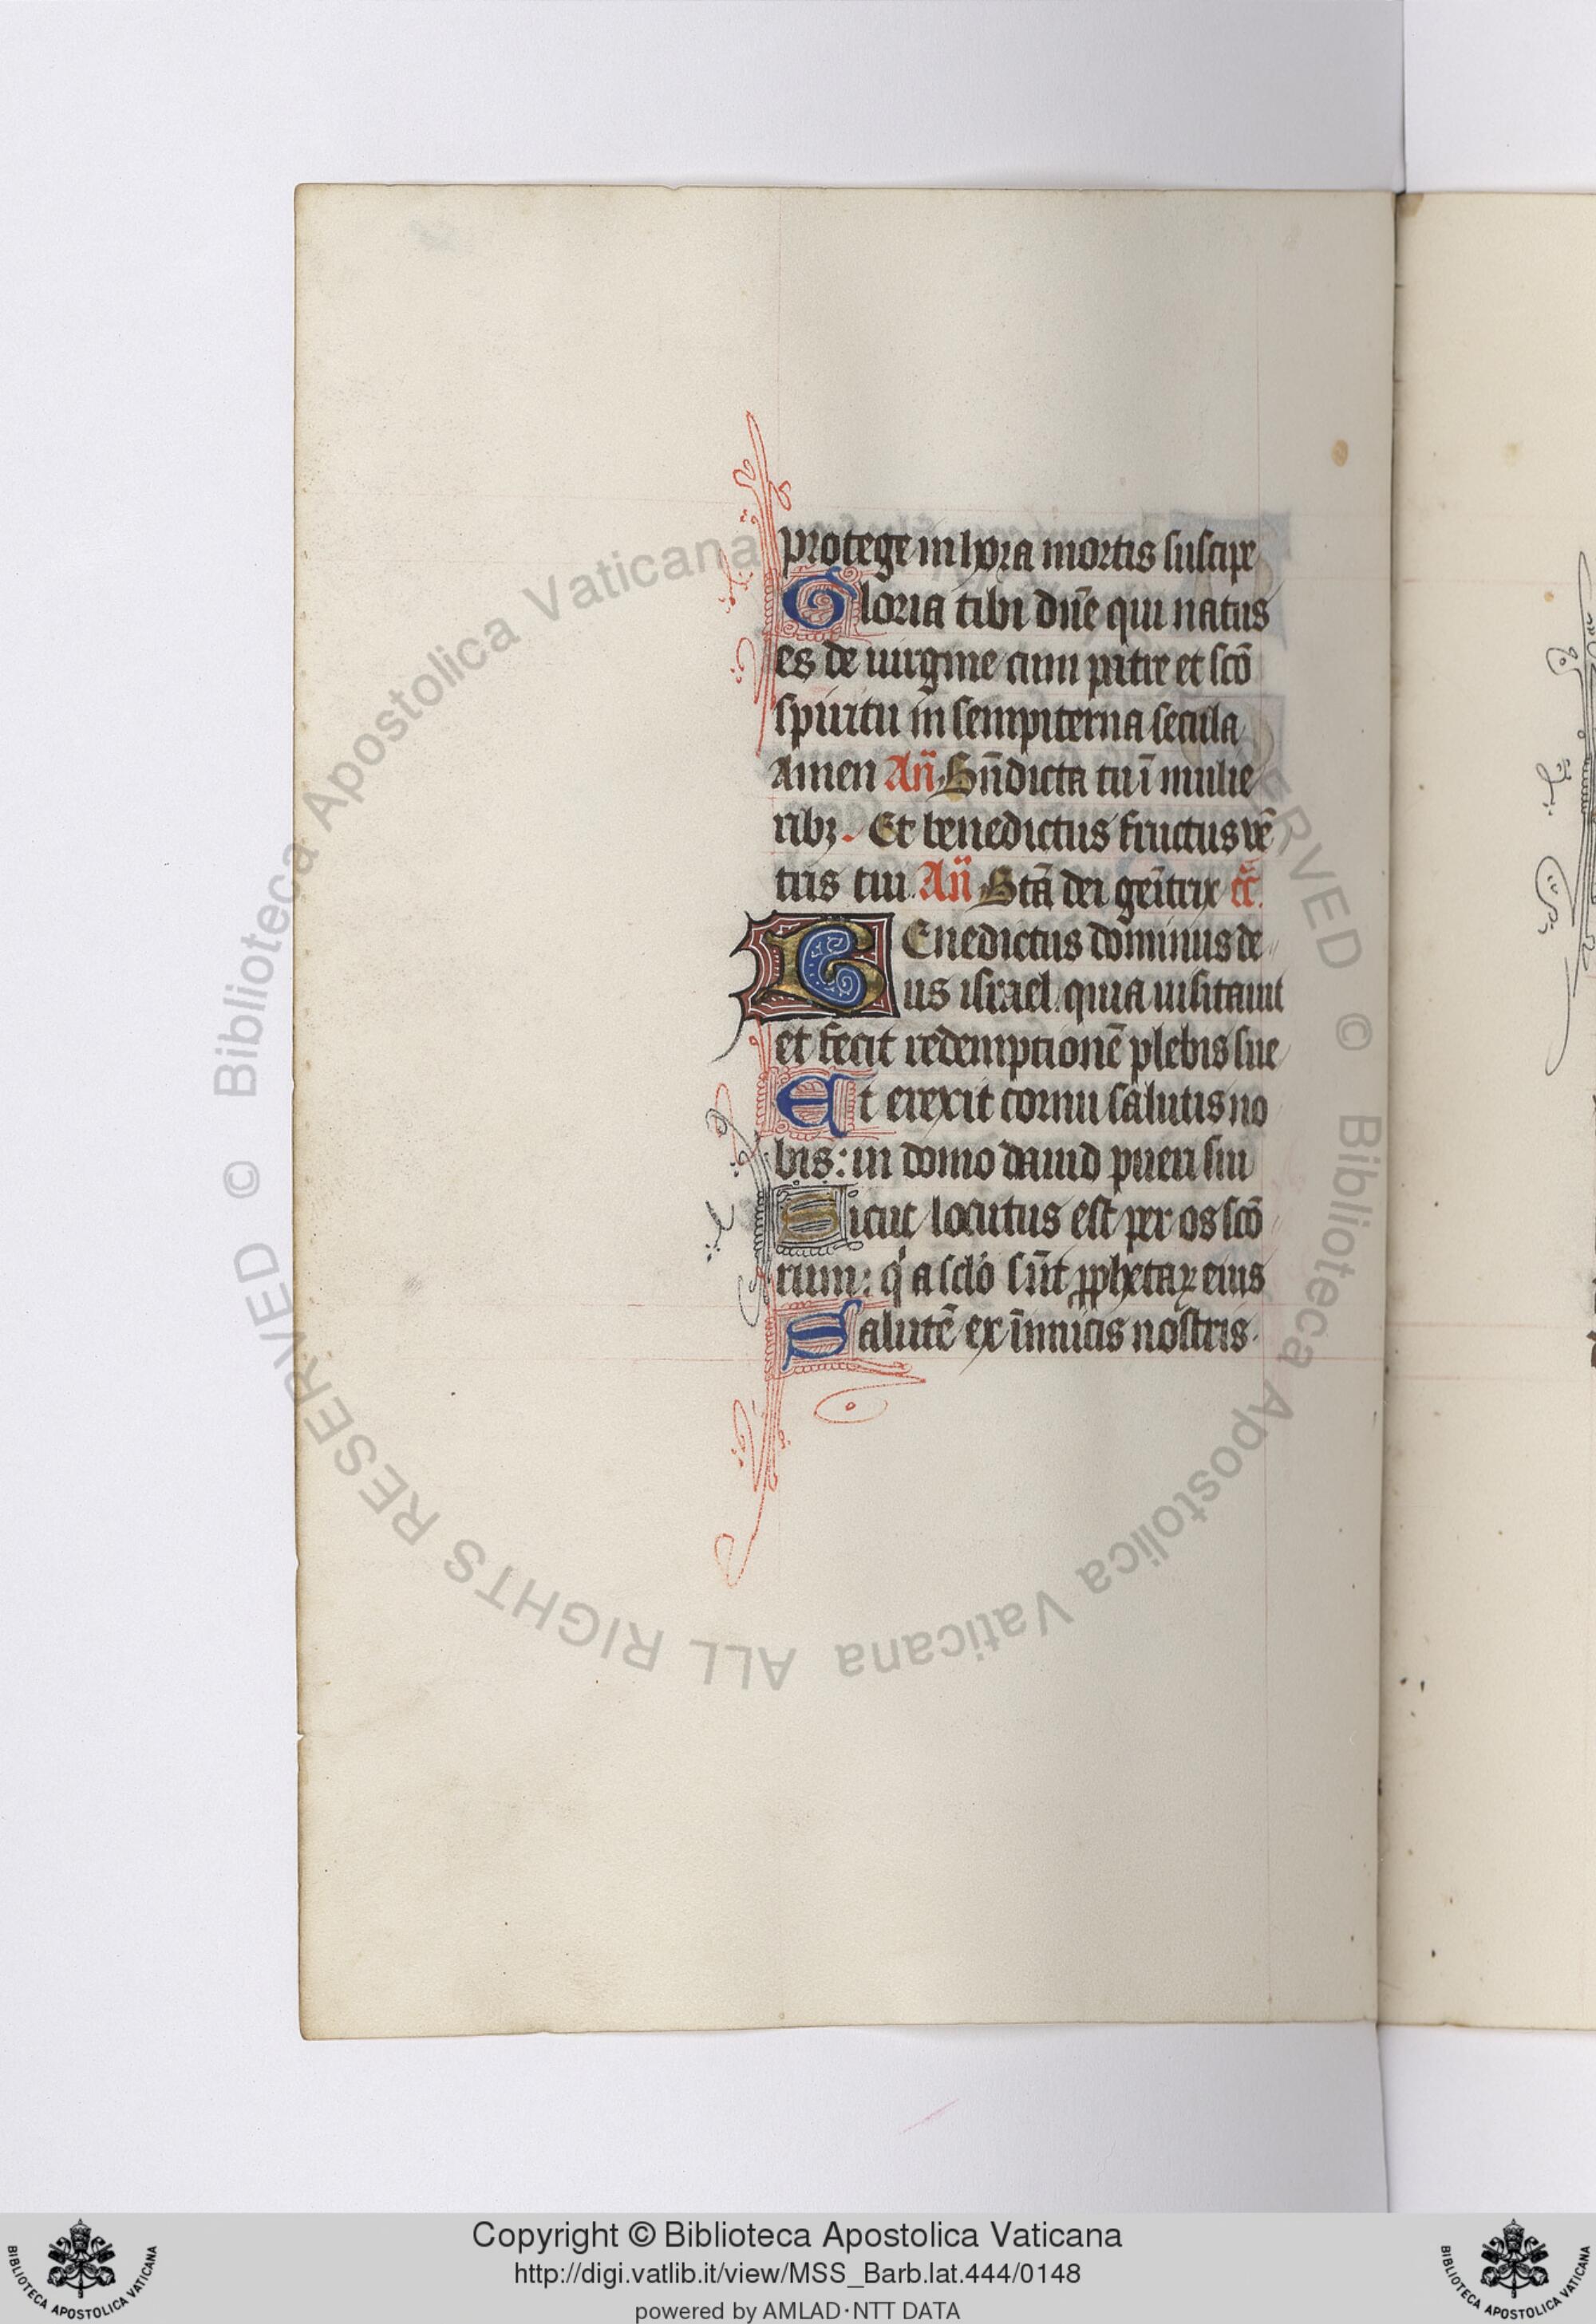 protege in hora mortis suscipe
Gloria tibi dn̄e qui natus
es de uirgine cum patre et scō
spiritu in sempiterna secula
amen Añ Bn̄dicta tu ī mulie
ribꝫ. Et benedictus fructus uē
tris tui. Añ Sctā dei geītrix cc̄.
BEnedictus dominus de
us israel. quia uisitauit
et fecit redemptionē plebis sue
Et erexit cornu salutis no
bis: in domo dauid pueri sui
Sicut locutus est per os scō
rum: q a sclō sūt ꝓphetaꝝ eius
Salutē ex inimicis nostris.
© Biblioteca Apostolica Vaticana ALL RIGHTS RESERVED © Biblioteca Apostolica Vaticana
Copyright © Biblioteca Apostolica Vaticana
http://digi.vatlib.it/view/MSS_Barb.lat.444/0148
powered by AMLAD·NTT DATA
BIBLIOTECA APOSTOLICA VATICANA
BIBLIOTECA APOSTOLICA VATICANA